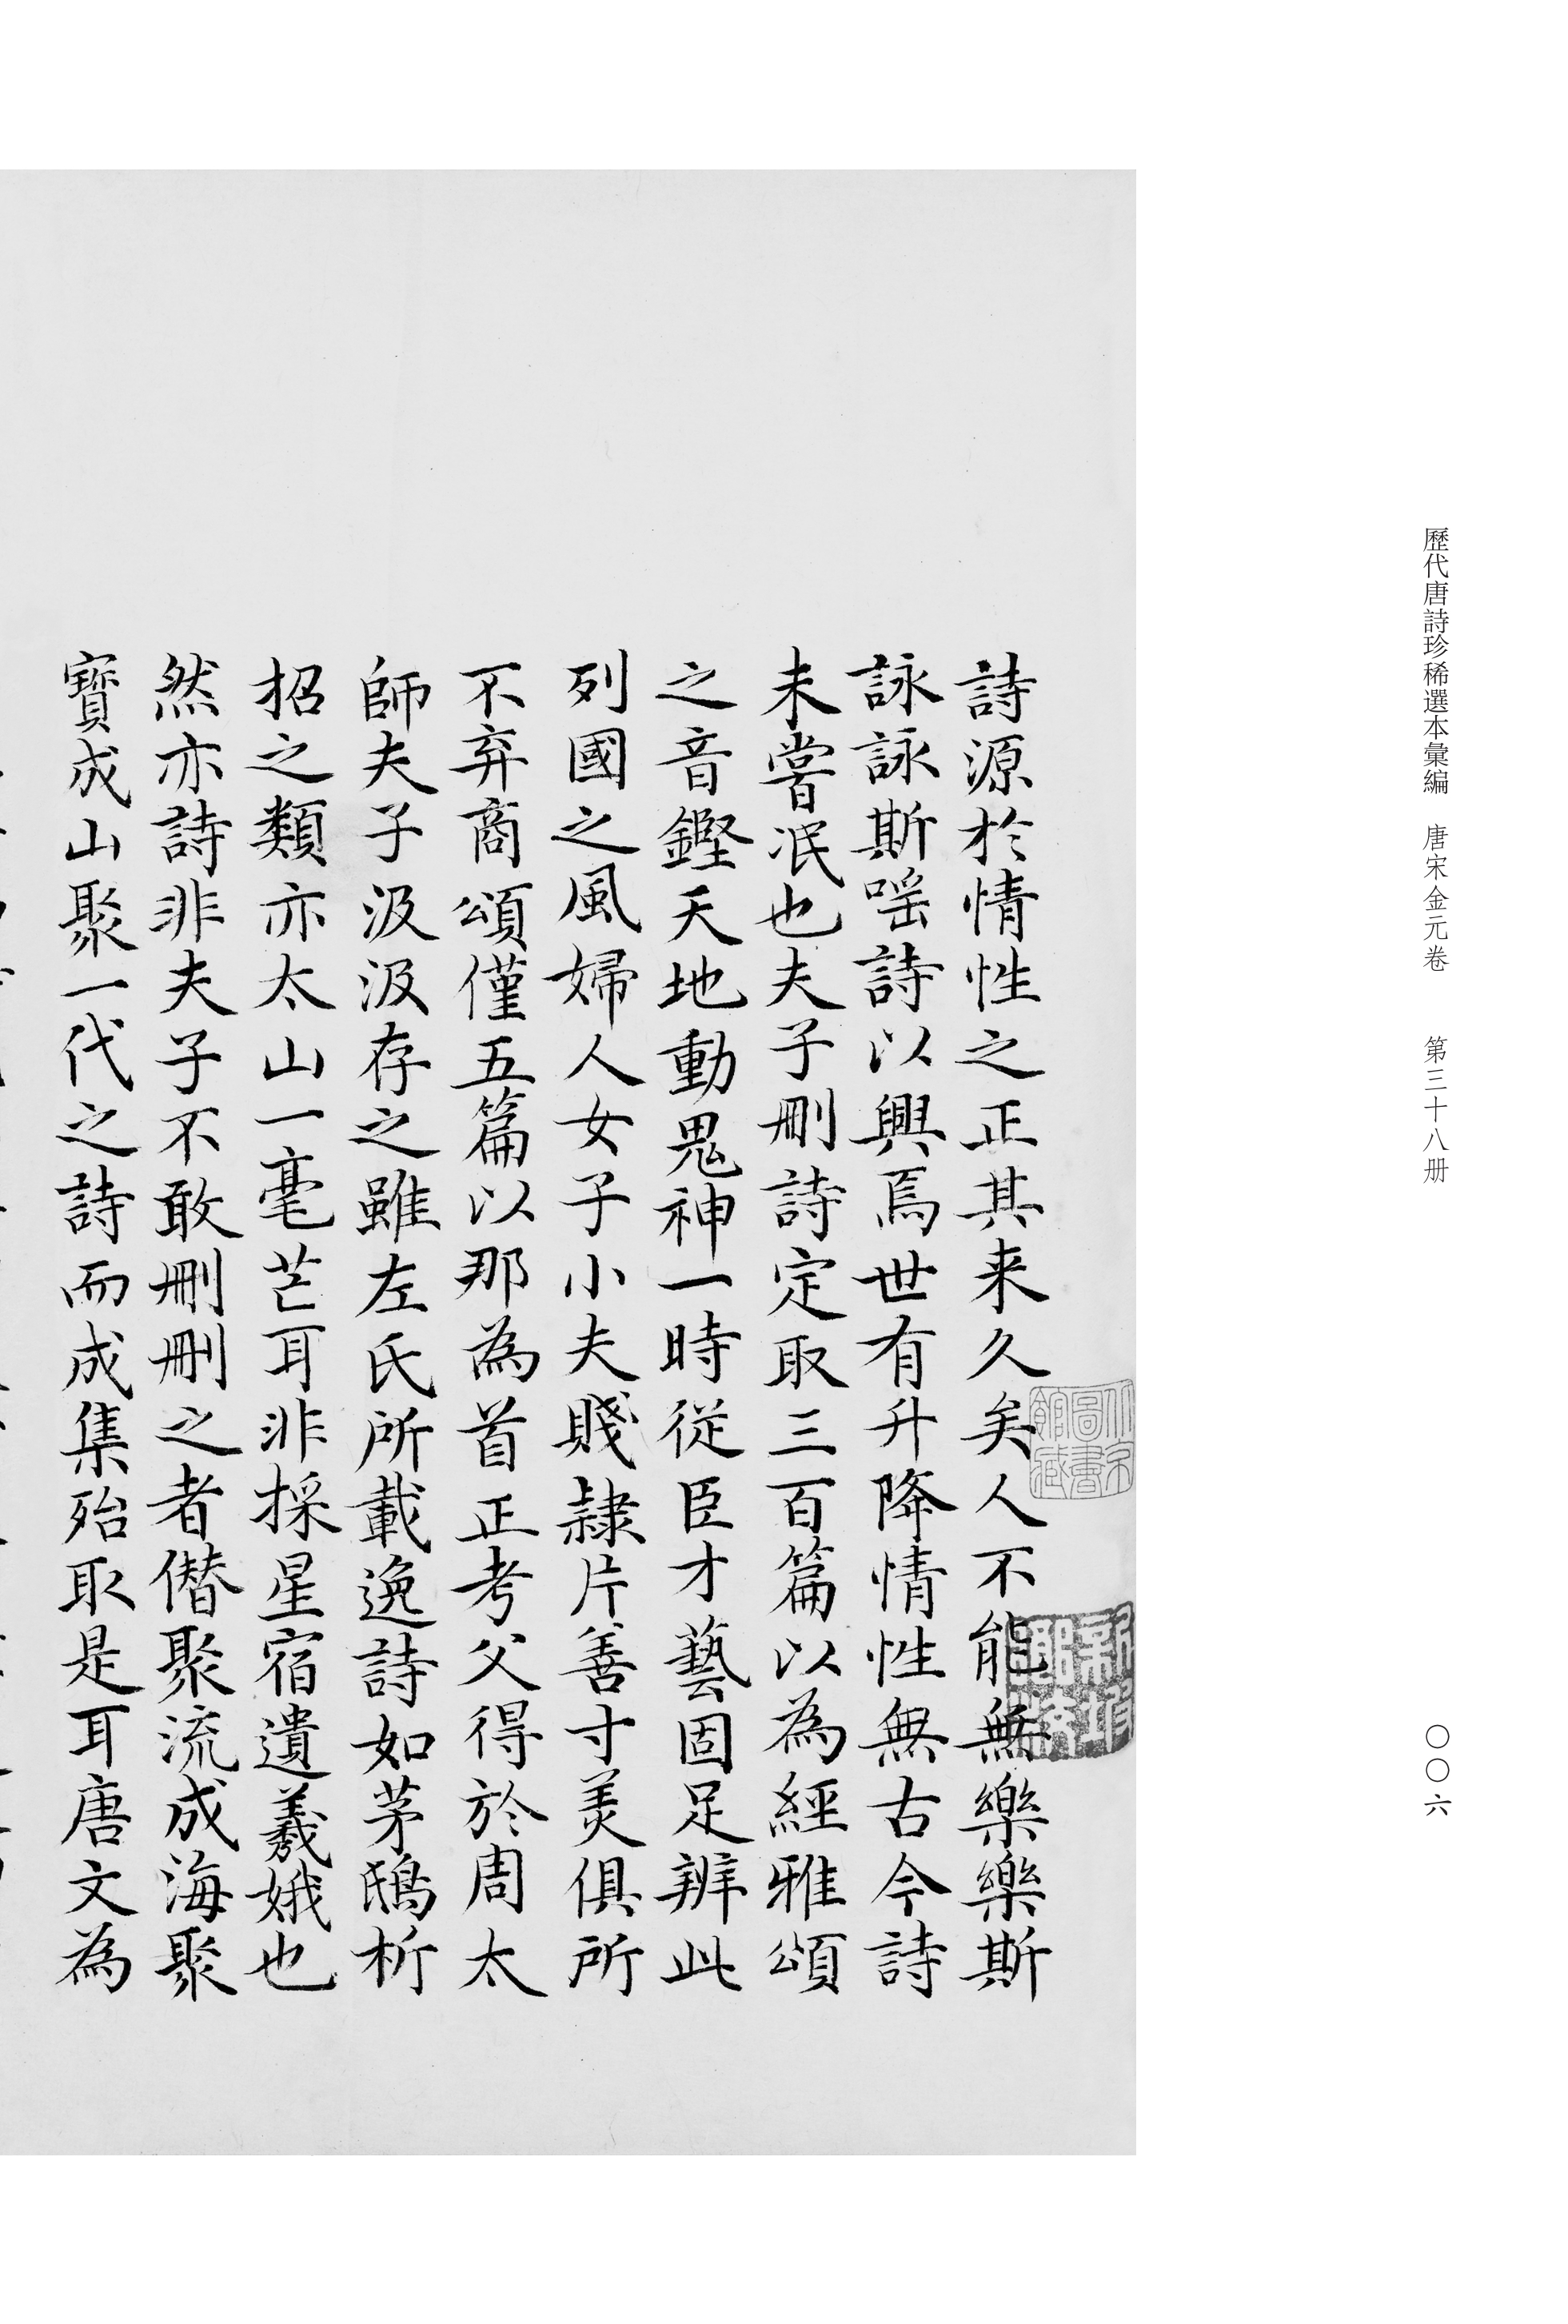 歷代唐詩珍稀選本彙編　唐宋金元卷　第三十八册
〇〇六
詩源於情性之正其来久矣人不能無樂樂斯
詠詠斯嗂詩以興焉世有升降情性無古今詩
未嘗泯也夫子刪詩定取三百篇以為經雅頌
之音鏗天地動鬼神一時從臣才藝固足辨此
列國之風婦人女子小夫賤隷片善寸美俱所
不弃商頌僅五篇以那為首正考父得於周太
師夫子汲汲存之雖左氏所載逸詩如茅鴟析
招之類亦太山一毫芒耳非採星宿遺羲娥也
然亦詩非夫子不敢刪刪之者僭聚流成海聚
寳成山聚一代之詩而成集殆取是耳唐文為